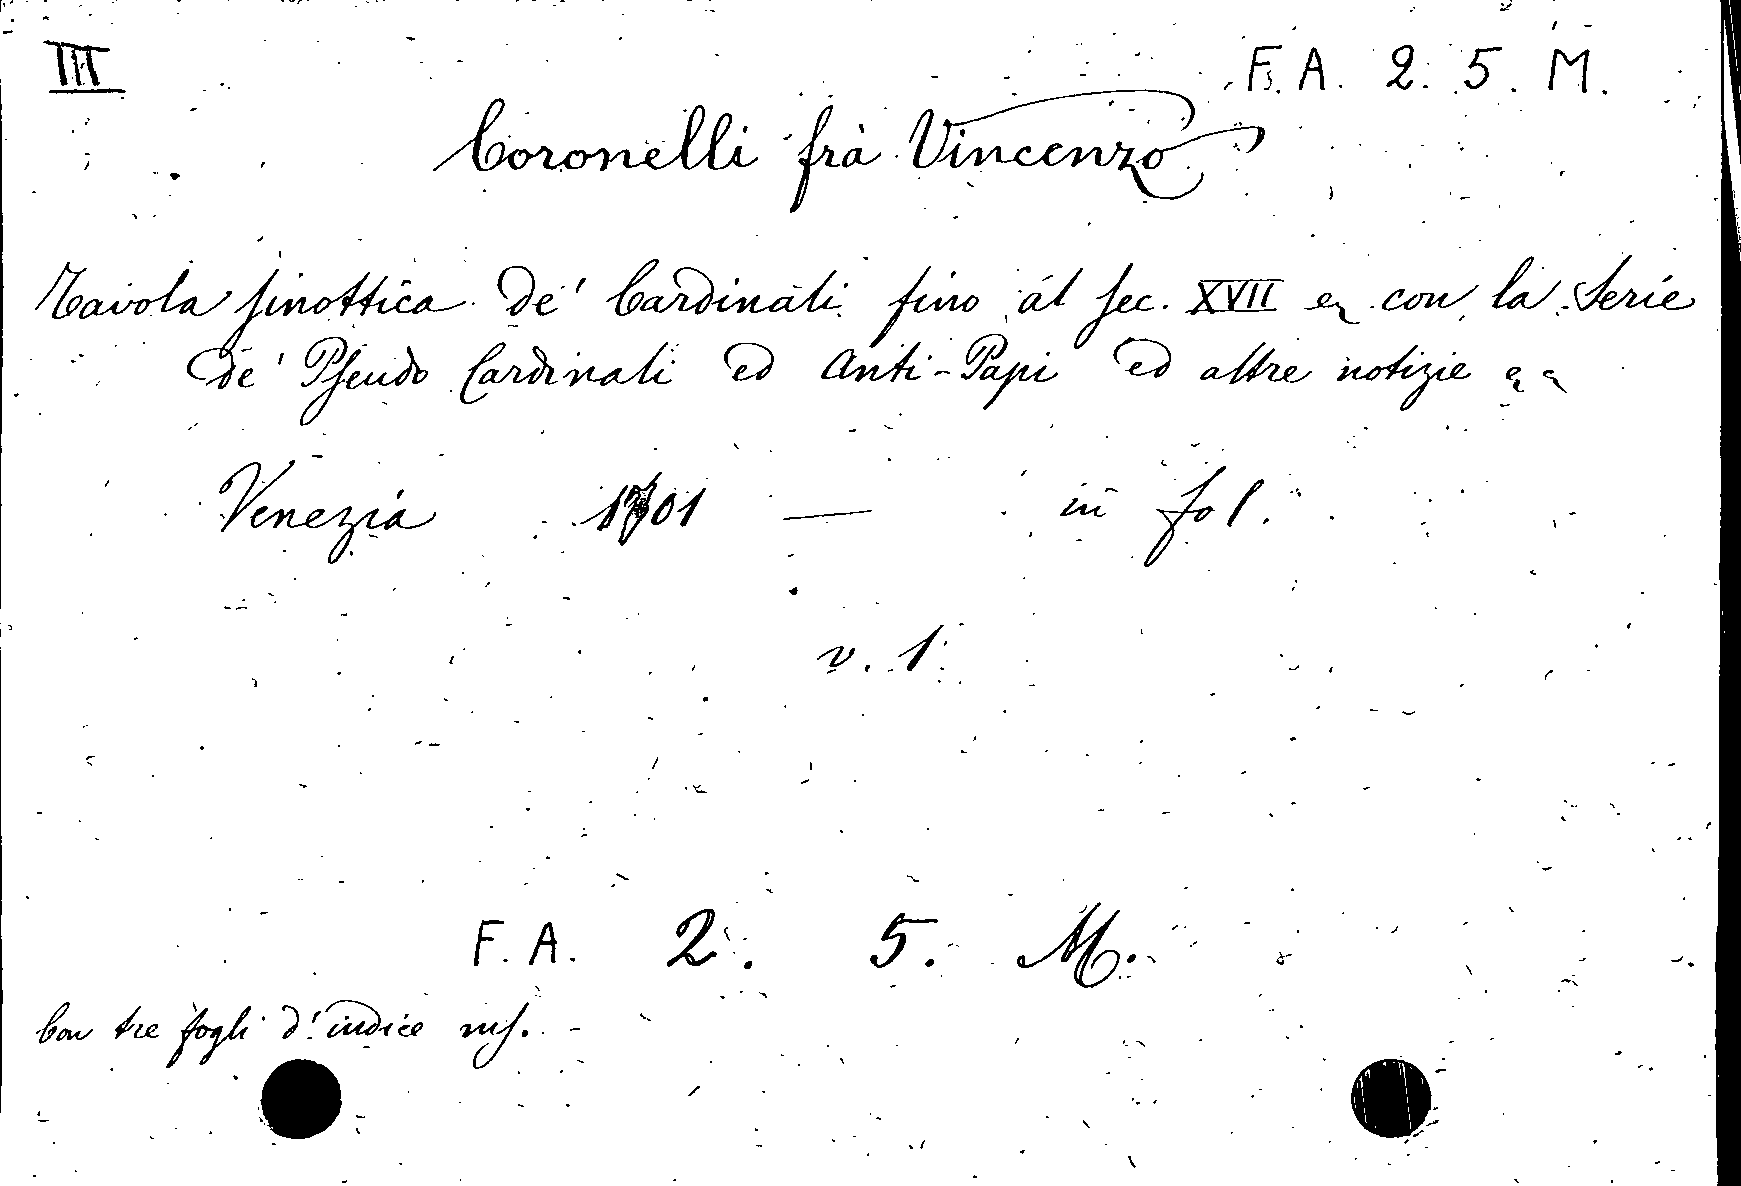 III
F. A. 2. 5. M.
Coronelli frà Vincenzo
Tavola sinottica de' Cardinali fino al sec. XVII e con la Serie
de' Pseudo Cardinali ed Anti-Papi ed altre notizie
Venezia 1701 — in fol.
v. 1
F. A. 2. 5. M.
Con tre fogli d'indice ms.